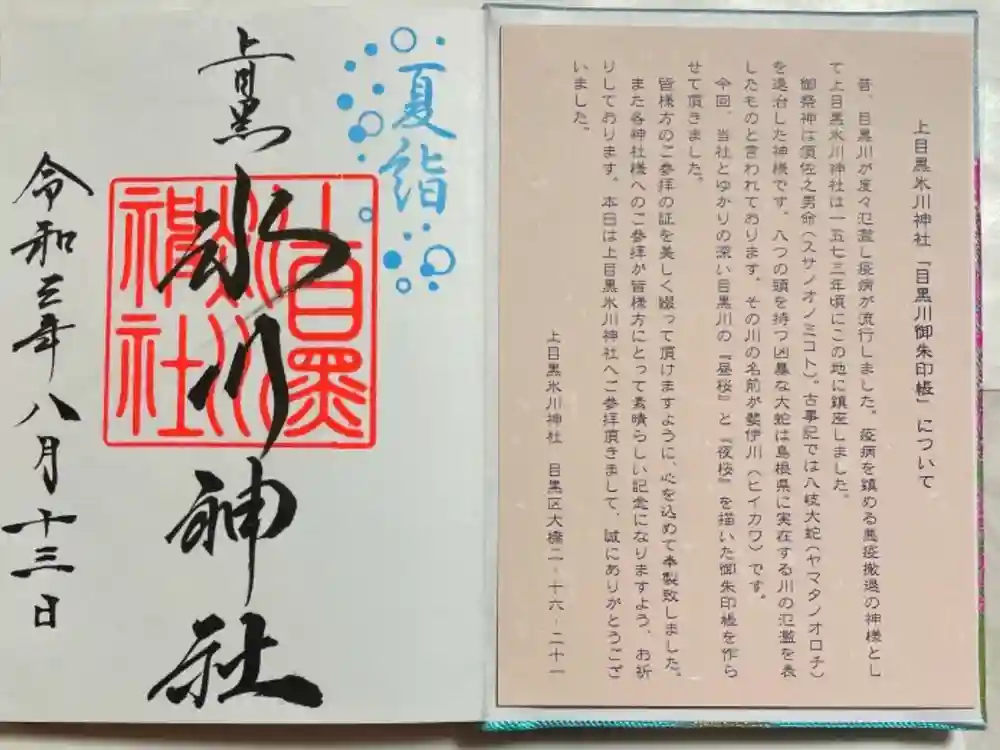 上目黒氷川神社「目黒川御朱印帳」について
昔、目黒川が度々氾濫し疫病が流行しました。疫病を鎮める悪疫撤退の神様とし
て上目黒氷川神社は一五七三年頃にこの地に鎮座しました。
御祭神は須佐之男命(スサノオノミコト)。古事記では八岐大蛇(ヤマタノオロチ)
を退治した神様です。八つの頭を持つ凶暴な大蛇は島根県に実在する川の氾濫を表
したものと言われております。その川の名前が斐伊川(ヒイカワ)です。
今回、当社とゆかりの深い目黒川の『昼桜』と『夜桜』を描いた御朱印帳を作ら
せて頂きました。
皆様方のご参拝の証を美しく綴って頂けますように、心を込めて奉製致しました。
また各神社様へのご参拝が皆様方にとって素晴らしい記念になりますよう、お祈
りしております。本日は上目黒氷川神社へご参拝頂きまして、誠にありがとうござ
いました。
上目黒氷川神社 目黒区大橋二-十六-二十一
夏詣
上目黒
氷川神社
上目黒
氷川
神社
令和三年八月十三日